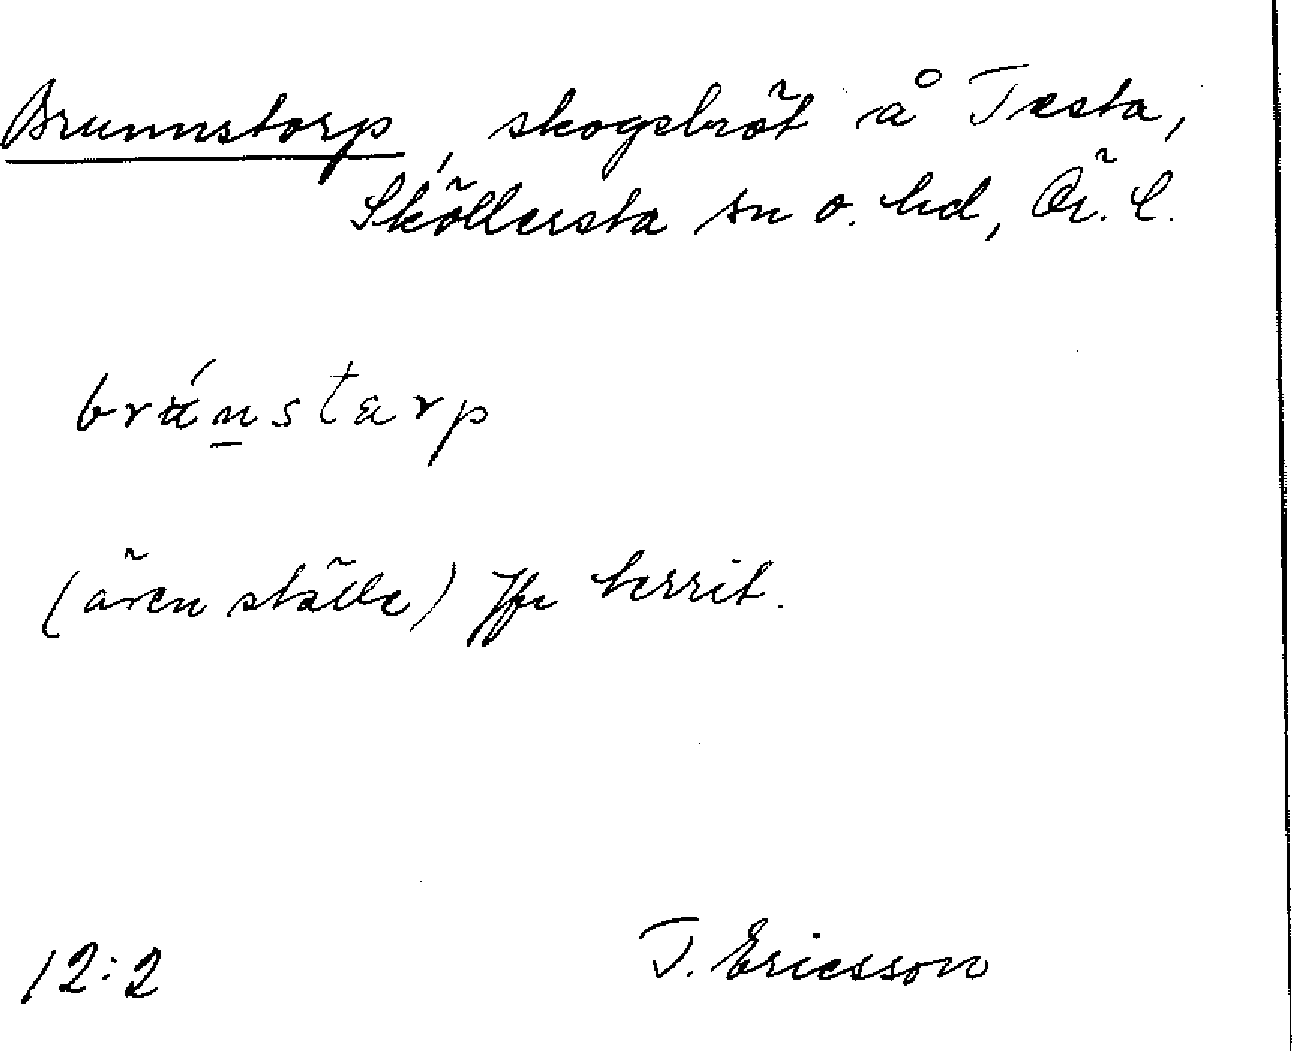 Brunnstorp, skogsbröt å Testa,
Sköllersta sn o. hd, Ör. l.
bránstarp
(även ställe) Jfr territ.
12:2 T. Ericsson